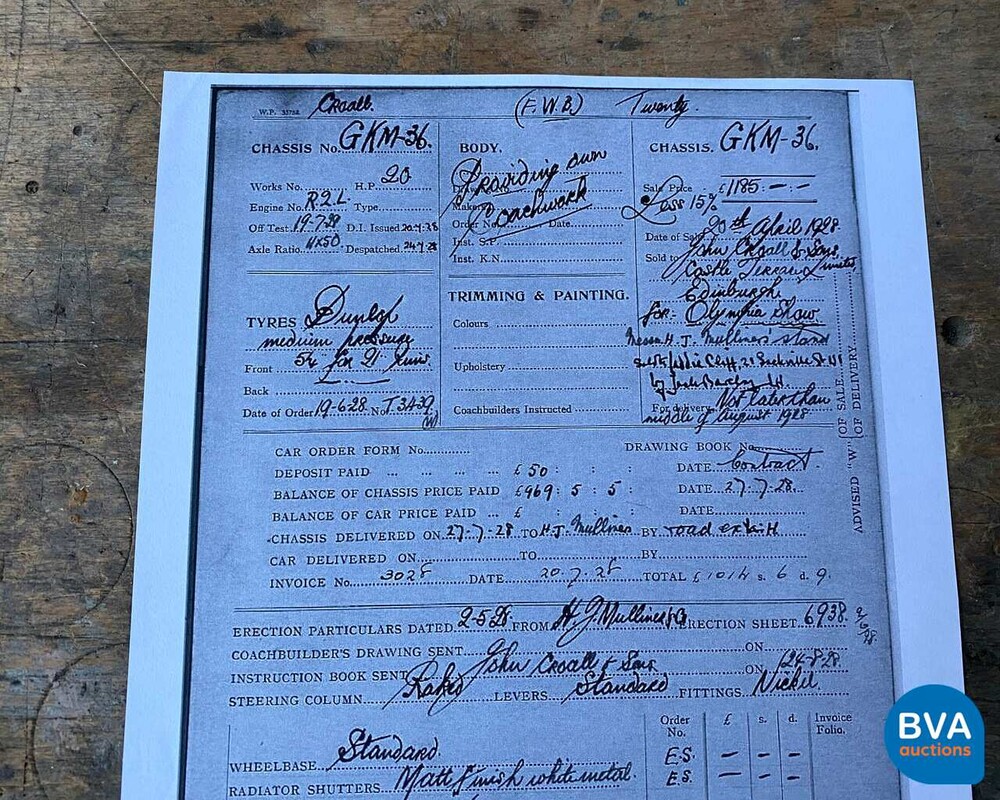 W.P. Croall. (F.W.B.) Twenty.
CHASSIS No. GKM-36.
Works No. H.P. 20
Engine No. R2L Type
Off Test 19-7-28 D.I. Issued 20-7-28
Axle Ratio Despatched 24-7-28
TYRES Dunlop
medium pressure
Front for 21"
Back
Date of Order 19-6-28 No.
BODY.
Providing own
Coachwork
Order No. Date
Inst. S.P.
Inst. K.N.
TRIMMING & PAINTING.
Colours
Upholstery
Coachbuilders Instructed
CHASSIS. GKM-36.
Sale Price £1185:-:-
Less 15%
Date of Sale 20th April 1928
Sold to John Croall & Sons
Castle Terrace Limited
Edinburgh.
for:- Olympia Show
Messrs H. J. Mulliner's stand
by Jack Barclay Ltd
For delivery Not later than
middle of August 1928
ADVISED "W" OF SALE
OF DELIVERY
CAR ORDER FORM No. DRAWING BOOK No.
DEPOSIT PAID ... £ 50 : : DATE Contract
BALANCE OF CHASSIS PRICE PAID £969 : 5 : 5 : DATE 27-7-28
BALANCE OF CAR PRICE PAID ... £ : : DATE
CHASSIS DELIVERED ON 27-7-28 TO H.J. Mulliner BY road
CAR DELIVERED ON TO BY
INVOICE No. 3028 DATE 20-7-28 TOTAL £ 1014 s. 6 d. 9.
ERECTION PARTICULARS DATED 2-5-28 FROM H J Mulliner & Co ERECTION SHEET 6938
COACHBUILDER'S DRAWING SENT ON
INSTRUCTION BOOK SENT John Croall & Sons ON 24-8-28
STEERING COLUMN Raked LEVERS Standard FITTINGS Nickel
Order No. £ s. d. Invoice Folio.
WHEELBASE Standard. E.S. - -
RADIATOR SHUTTERS Matt finish white metal. E.S. - -
BVA
auctions